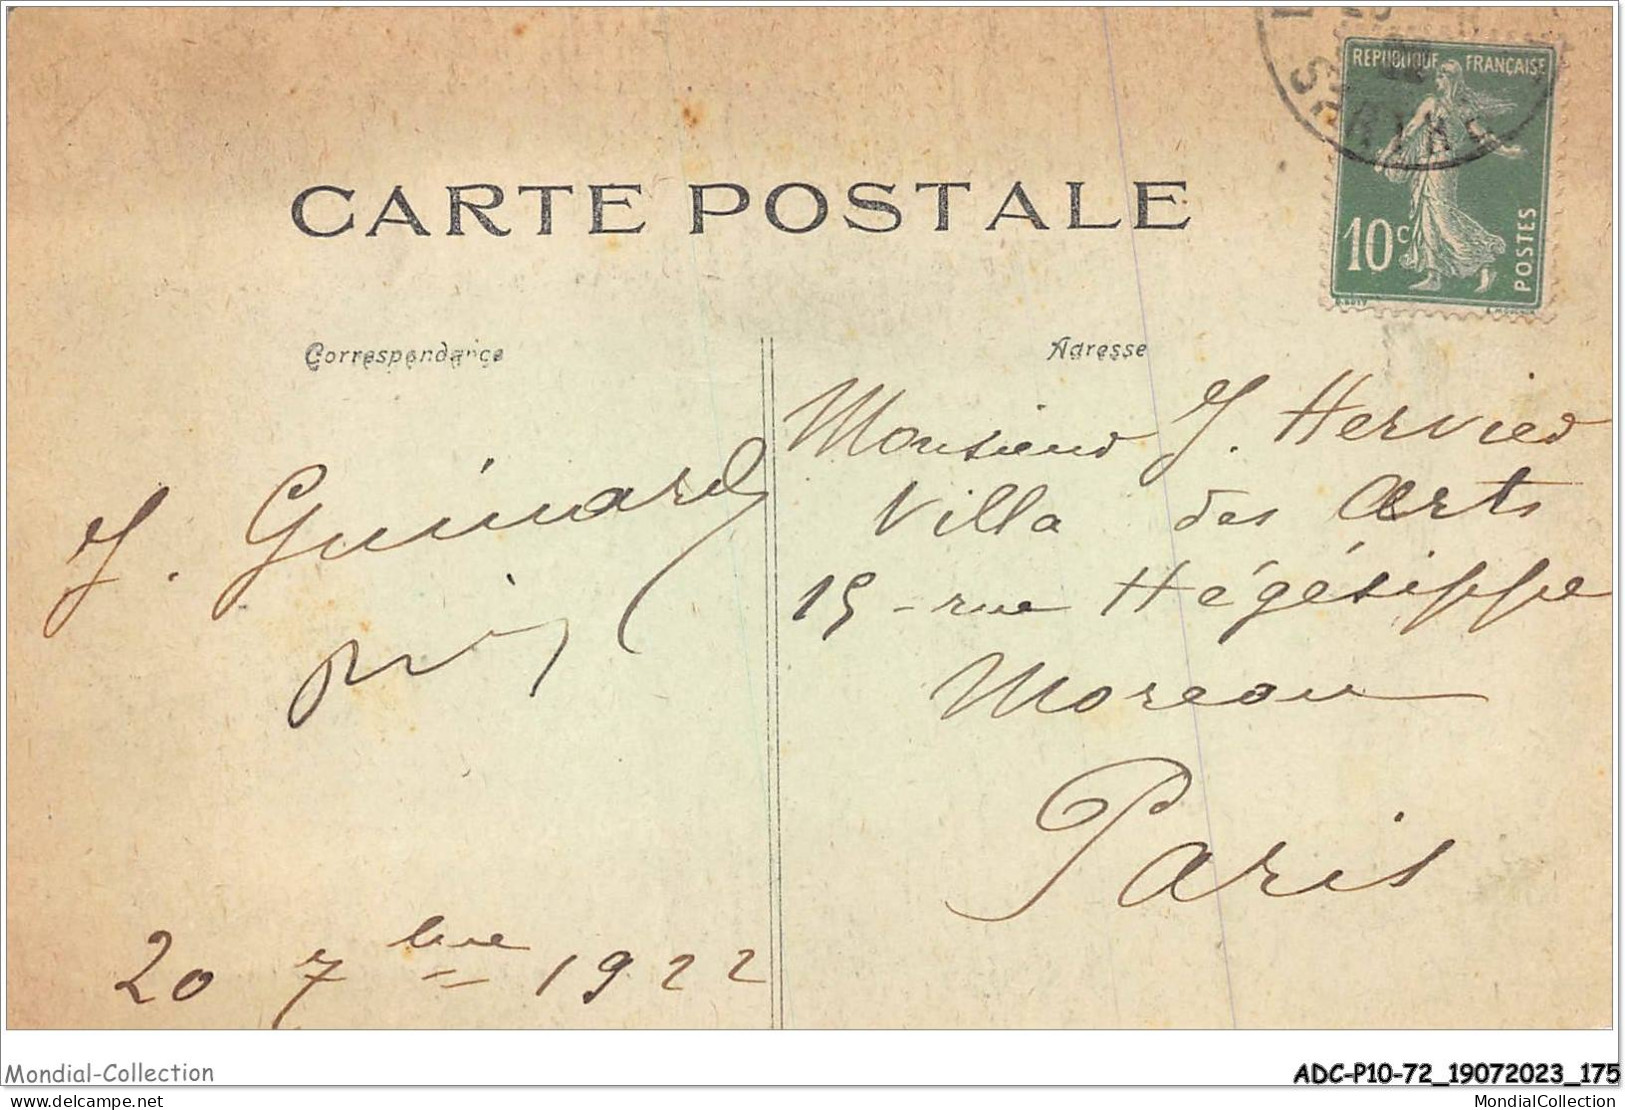 RÉPUBLIQUE FRANÇAISE
10c
POSTES
CARTE POSTALE
Correspondance
Adresse
Monsieur J. Hervied
Villa des Arts
15 - rue Hégésippe
Moreau
Paris
J. Guinard
20 7bre 1922
Mondial-Collection
ADC-P10-72_19072023_175
delcampe.net
MondialCollection